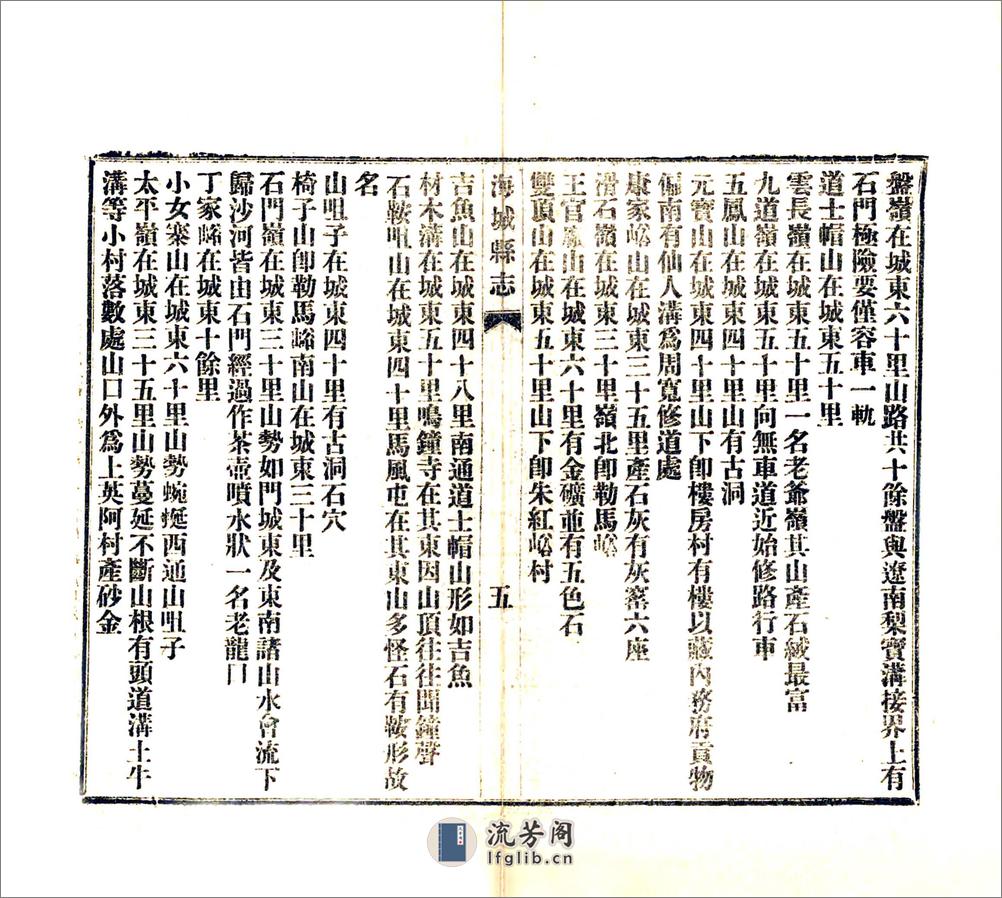 盤嶺在城東六十里山路共十餘盤與遼南梨寶溝接界上有
石門極險要僅容車一軌
道士帽山在城東五十里
雲長嶺在城東五十里一名老爺嶺其山產石絨最富
九道嶺在城東五十里向無車道近始修路行車
五鳳山在城東四十里山有古洞
元寶山在城東四十里山下卽樓房村有樓以藏內務府貢物
偏南有仙人溝爲周寬修道處
康家峪山在城東三十五里產石灰有灰窰六座
滑石嶺在城東三十里嶺北卽勒馬峪
王官山在城東六十里有金礦並有五色石
雙頂山在城東五十里山下卽朱紅峪村
海城縣志
五
吉魚山在城東四十八里南通道士帽山形如吉魚
材木溝在城東五十里鳴鐘寺在其東因山頂往往聞鐘聲
石鞍咀山在城東四十里馬風屯在其東山多怪石有鞍形故
名
山咀子在城東四十里有古洞石穴
椅子山卽勒馬峪南山在城東三十里
石門嶺在城東三十里山勢如門城東及東南諸山水會流下
歸沙河皆由石門經過作茶壺噴水狀一名老龍口
丁家峪在城東十餘里
小女寨山在城東六十里山勢蜿蜒西通山咀子
太平嶺在城東三十五里山勢蔓延不斷山根有頭道溝土牛
溝等小村落數處山口外爲上英阿村產砂金
流芳阁
lfglib.cn